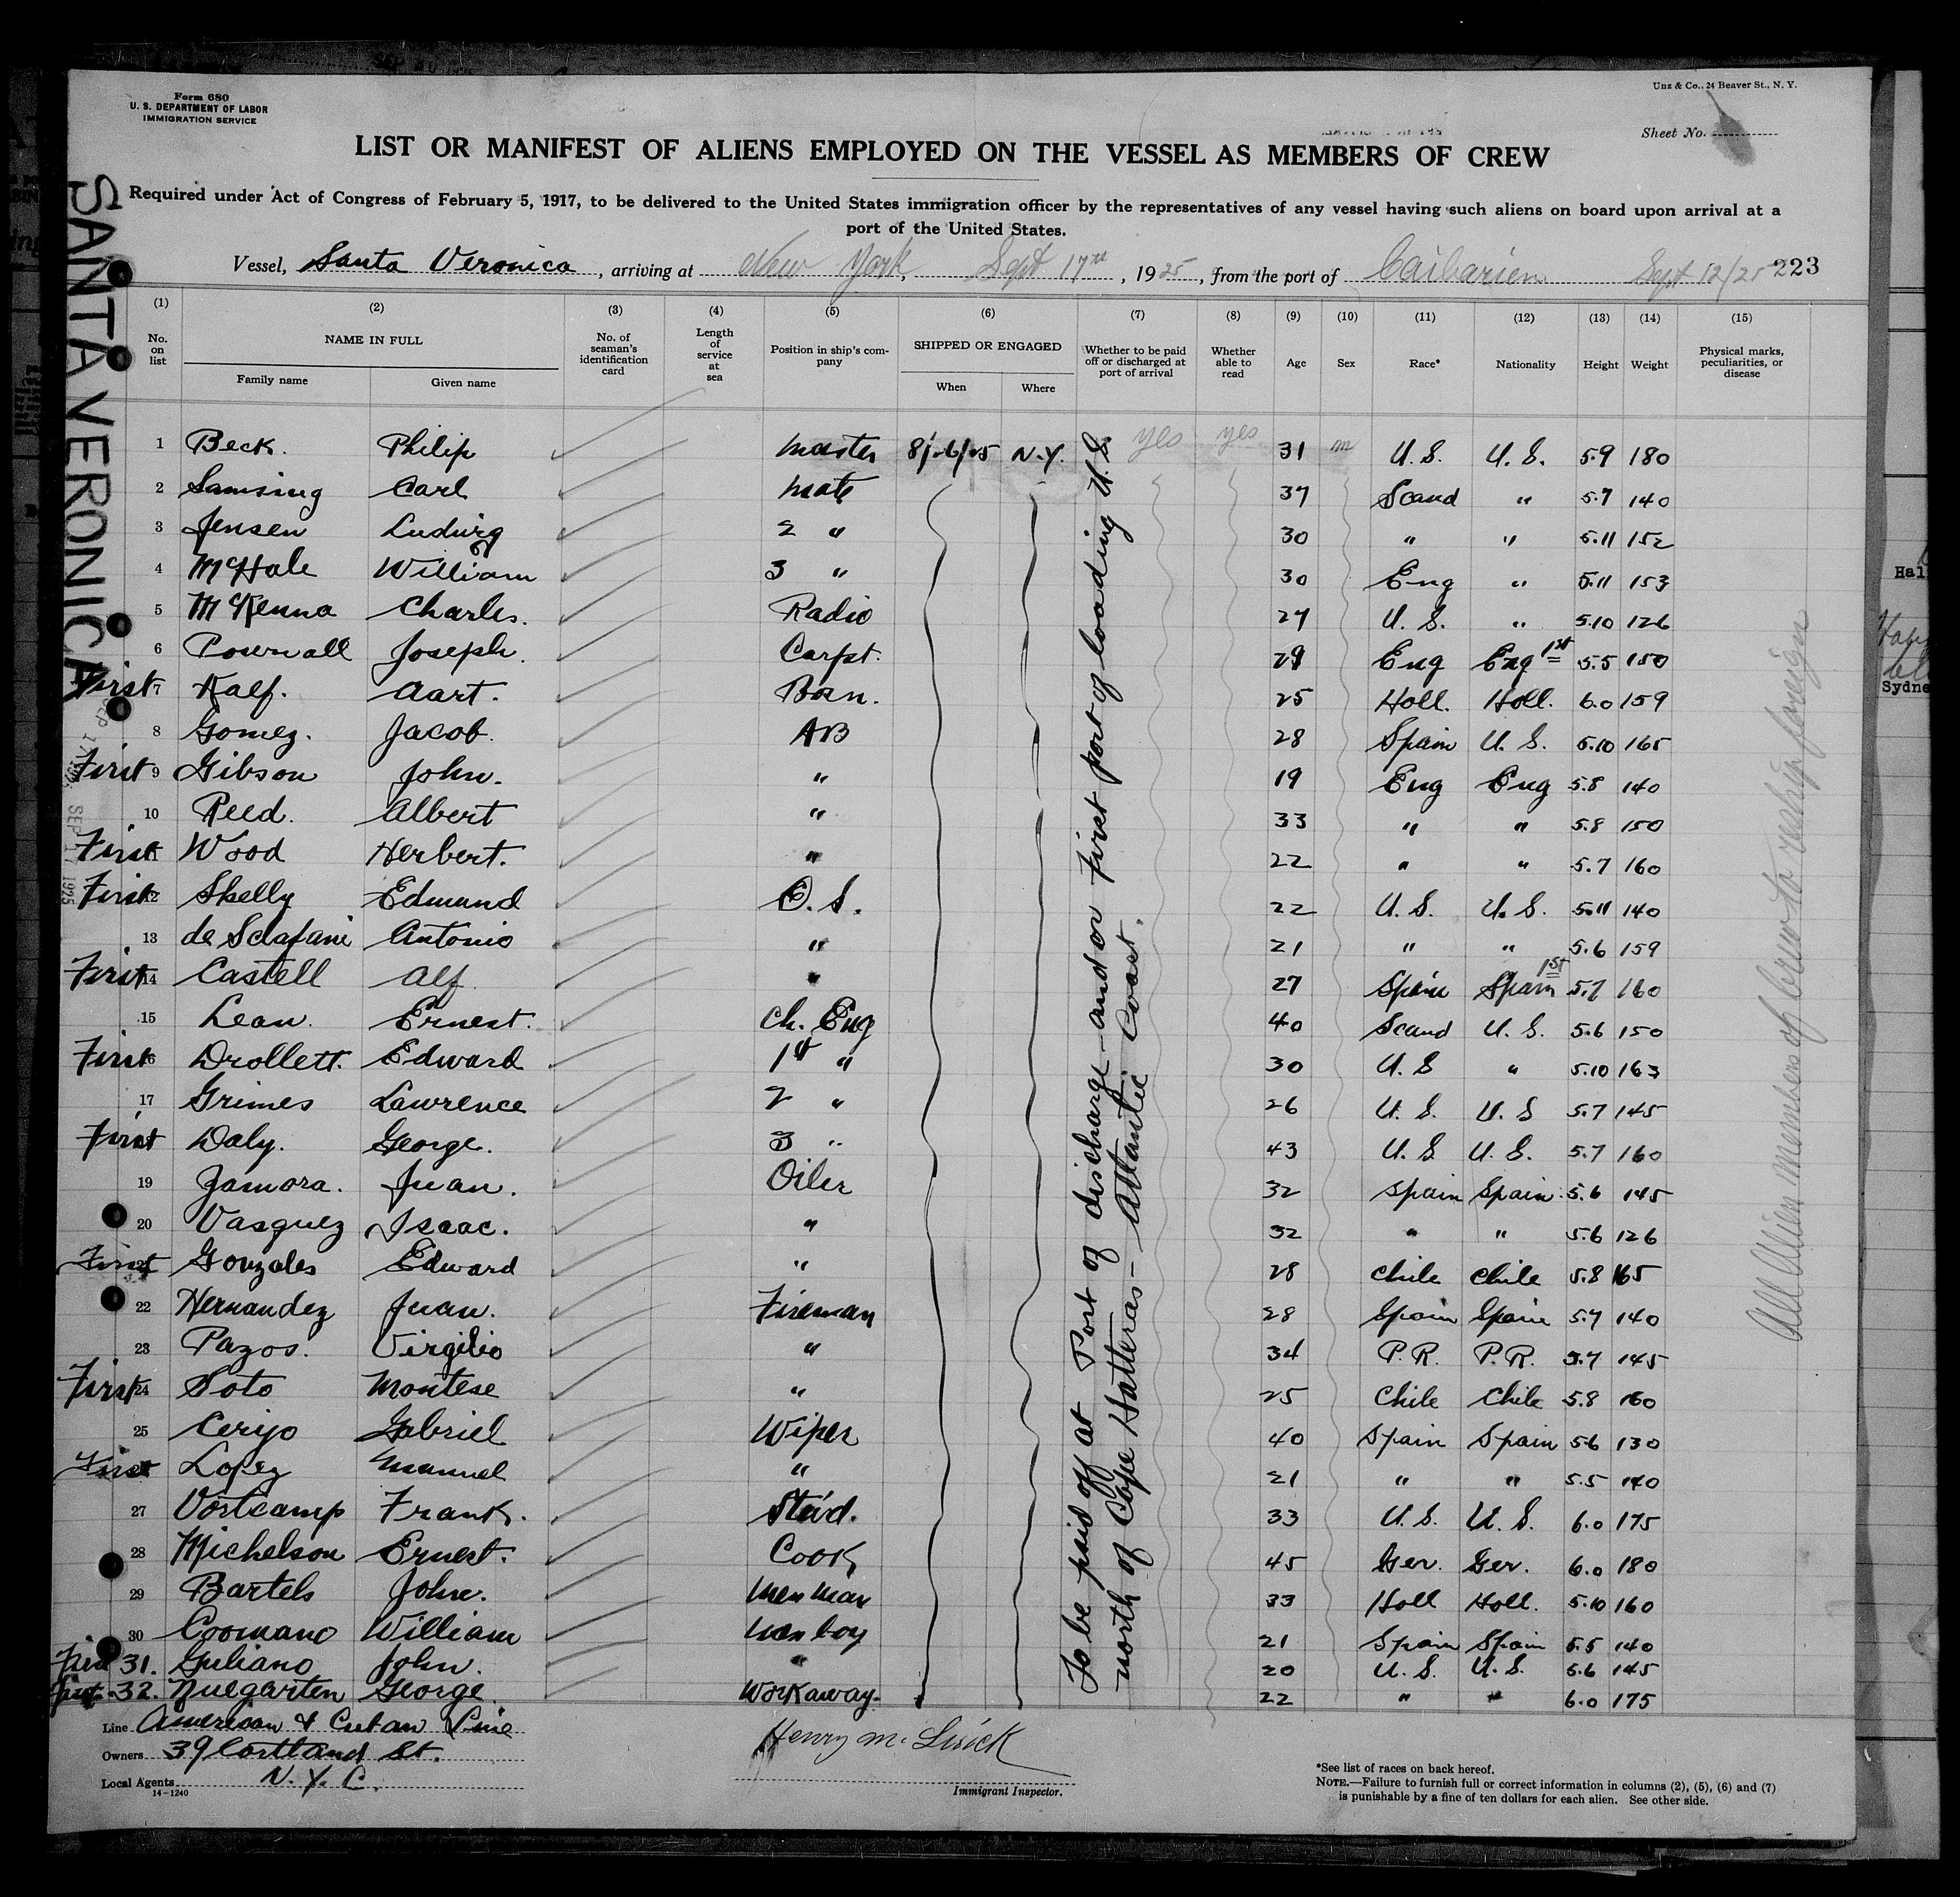 Form 680
U. S. DEPARTMENT OF LABOR
IMMIGRATION SERVICE
Unz & Co., 24 Beaver St., N. Y.
Sheet No.
LIST OR MANIFEST OF ALIENS EMPLOYED ON THE VESSEL AS MEMBERS OF CREW
Required under Act of Congress of February 5, 1917, to be delivered to the United States immigration officer by the representatives of any vessel having such aliens on board upon arrival at a
port of the United States.
Vessel, Santa Veronica, arriving at New York, Sept 17th, 1925, from the port of Caibarien Sept 12/25 223
SANTA VERONICA
(1) (2) (3) (4) (5) (6) (7) (8) (9) (10) (11) (12) (13) (14) (15)
No. on list NAME IN FULL Family name Given name No. of seaman's identification card Length of service at sea Position in ship's company SHIPPED OR ENGAGED When Where Whether to be paid off or discharged at port of arrival Whether able to read Age Sex Race* Nationality Height Weight Physical marks, peculiarities, or disease
1 Beck. Philip Master N.Y. yes yes 31 m U.S. U.S. 5.9 180
2 Samsing Carl Mate 37 Scand " 5.7 140
3 Jensen Ludwig 2 " 30 " " 5.11 152
4 McHale William 3 " 30 Eng " 5.11 153
5 McKenna Charles. Radio 27 U.S. " 5.10 126
6 Pownall Joseph. Carpt. 29 Eng Eng 1st 5.5 150
First 7 Kalf. Aart. Bosn. 25 Holl. Holl. 6.0 159
8 Gomez. Jacob. AB 28 Spain U.S. 5.10 165
First 9 Gibson John. " 19 Eng Eng 5.8 140
10 Reed. Albert " 33 " " 5.8 150
First Wood Herbert. " 22 " " 5.7 160
First 12 Skelly Edmund O.S. 22 U.S. U.S. 5.11 140
13 de Sclafani Antonio " 21 " " 5.6 159
First 14 Castell Alf " 27 Spain Spain 1st 5.7 160
15 Lean. Ernest. Ch. Eng 40 Scand U.S. 5.6 150
First 16 Drollett. Edward 1st " 30 U.S " 5.10 163
17 Grimes Lawrence 2 " 26 U.S. U.S 5.7 145
First Daly. George. 3 " 43 U.S. U.S. 5.7 160
19 Zamora. Juan. Oiler 32 Spain Spain 5.6 145
20 Vasquez Isaac. " 32 " " 5.6 126
First Gonzales Edward " 28 Chile Chile 5.8 165
22 Hernandez Juan. Fireman 28 Spain Spain 5.7 140
23 Pazos. Virgilio " 34 P.R. P.R. 5.7 145
First 24 Soto Montese " 25 Chile Chile 5.8 160
25 Cerijo Gabriel Wiper 40 Spain Spain 5.6 130
First Lopez Manuel " 21 " " 5.5 140
27 Vortcamp Frank. Stwd. 33 U.S. U.S. 6.0 175
28 Michelson Ernest. Cook 45 Ger. Ger. 6.0 180
29 Bartels John. Messman 33 Holl Holl. 5.10 160
30 William Messboy 21 Spain Spain 5.5 140
First 31. Guliano John. " 20 U.S. U.S. 5.6 145
First 32. Nuegarten George. Workaway. 22 " " 6.0 175
To be paid off at Port of discharge - and or First port of loading U.S.
north of Cape Hatteras - Atlantic Coast.
All Alien members of crew to reship foreign
Line American & Cuban Line
Owners 39 Cortland St.
Local Agents N.Y.C.
14-1240
Immigrant Inspector.
*See list of races on back hereof.
NOTE.—Failure to furnish full or correct information in columns (2), (5), (6) and (7)
is punishable by a fine of ten dollars for each alien. See other side.